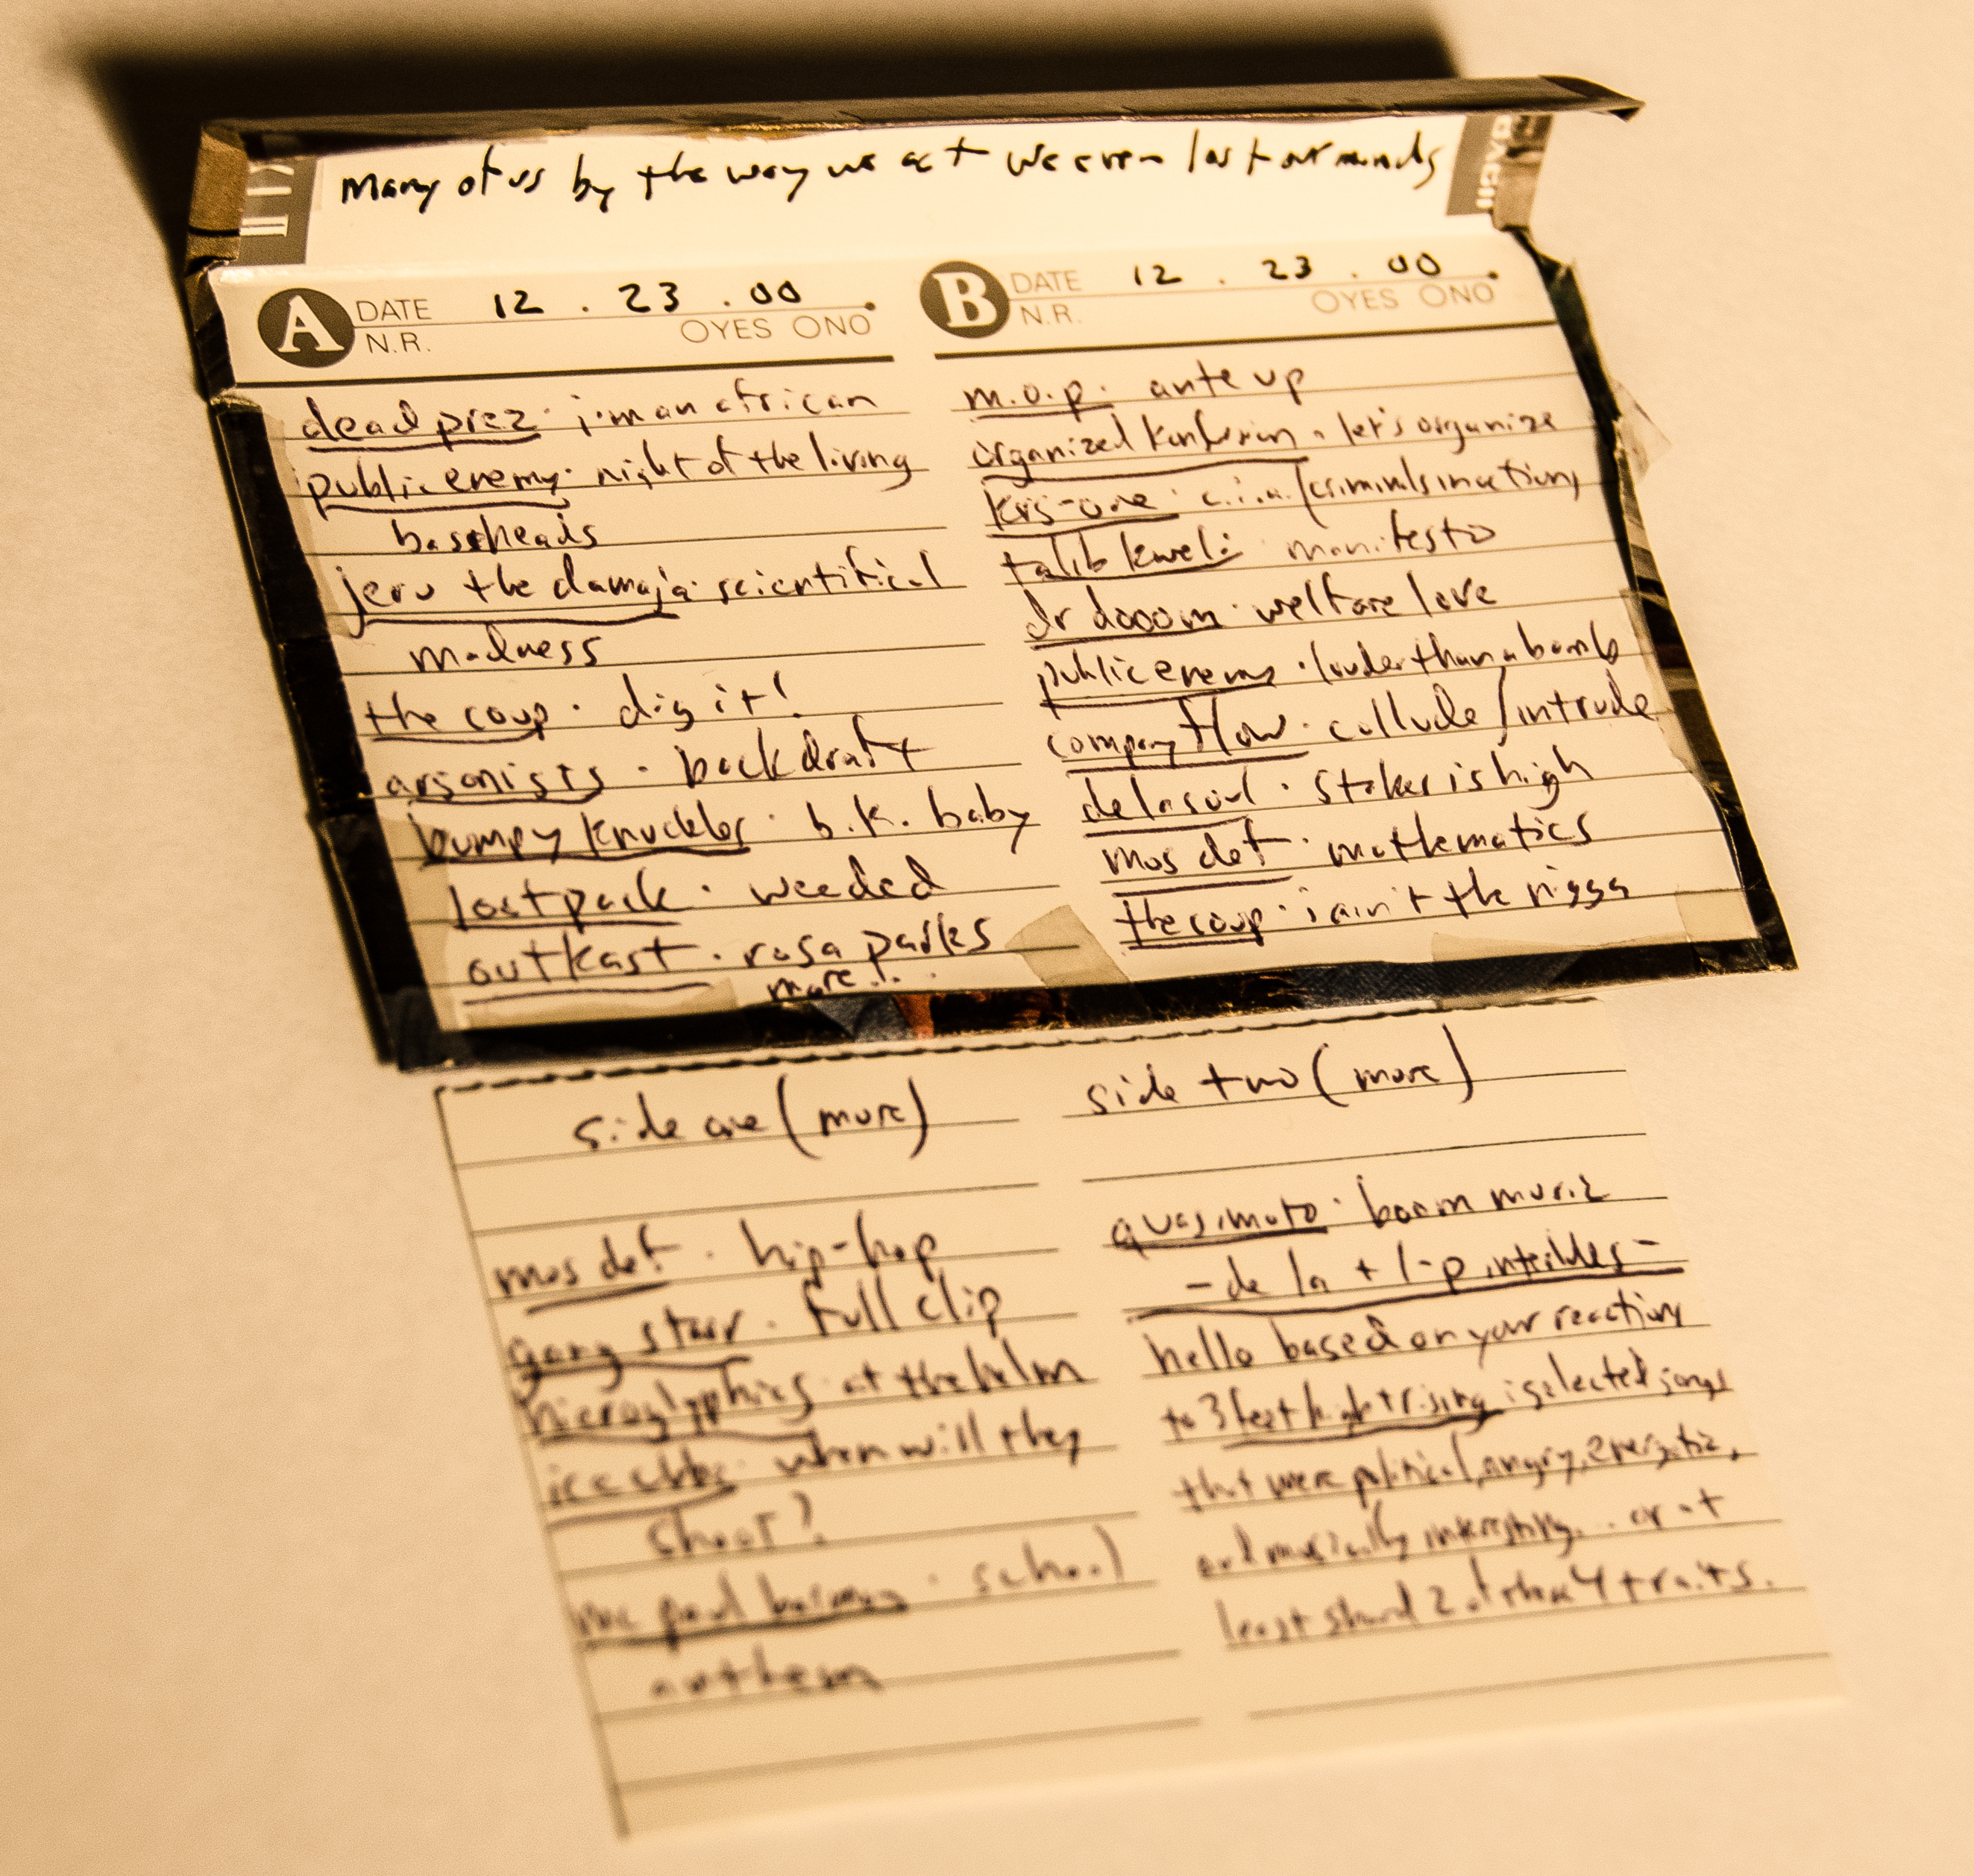 many of us by the way we act we even lost our minds
A DATE 12 . 23 . 00
N.R. OYES ONO
dead prez · i'm an african
public enemy · night of the living
baseheads
jeru the damaja · scientifical
madness
the coup · dig it!
arsonists · backdraft
bumpy knuckles · b.k. baby
lostpack · weeded
outkast · rosa parks
more!..
B DATE 12 . 23 . 00
N.R. OYES ONO
m.o.p. ante up
organized konfusion - let's organize
krs-one · c.i.a. (criminals in action)
talib kweli · manifesto
dr dooom · welfare love
public enemy · louder than a bomb
company flow · collude/intrude
de la soul · stakes is high
mos def · mathematics
the coup · i ain't the nigga
side one (more)
mos def · hip-hop
gang starr · full clip
hieroglyphics · at the helm
ice cube · when will they
shoot?
school
anthem
side two (more)
quasimoto · boom music
- de la + l-p -
hello based on your reaction
to 3 feet high + rising i selected songs
that were political, angry, energetic,
and musically interesting... or at
least shared 2 of these 4 traits.